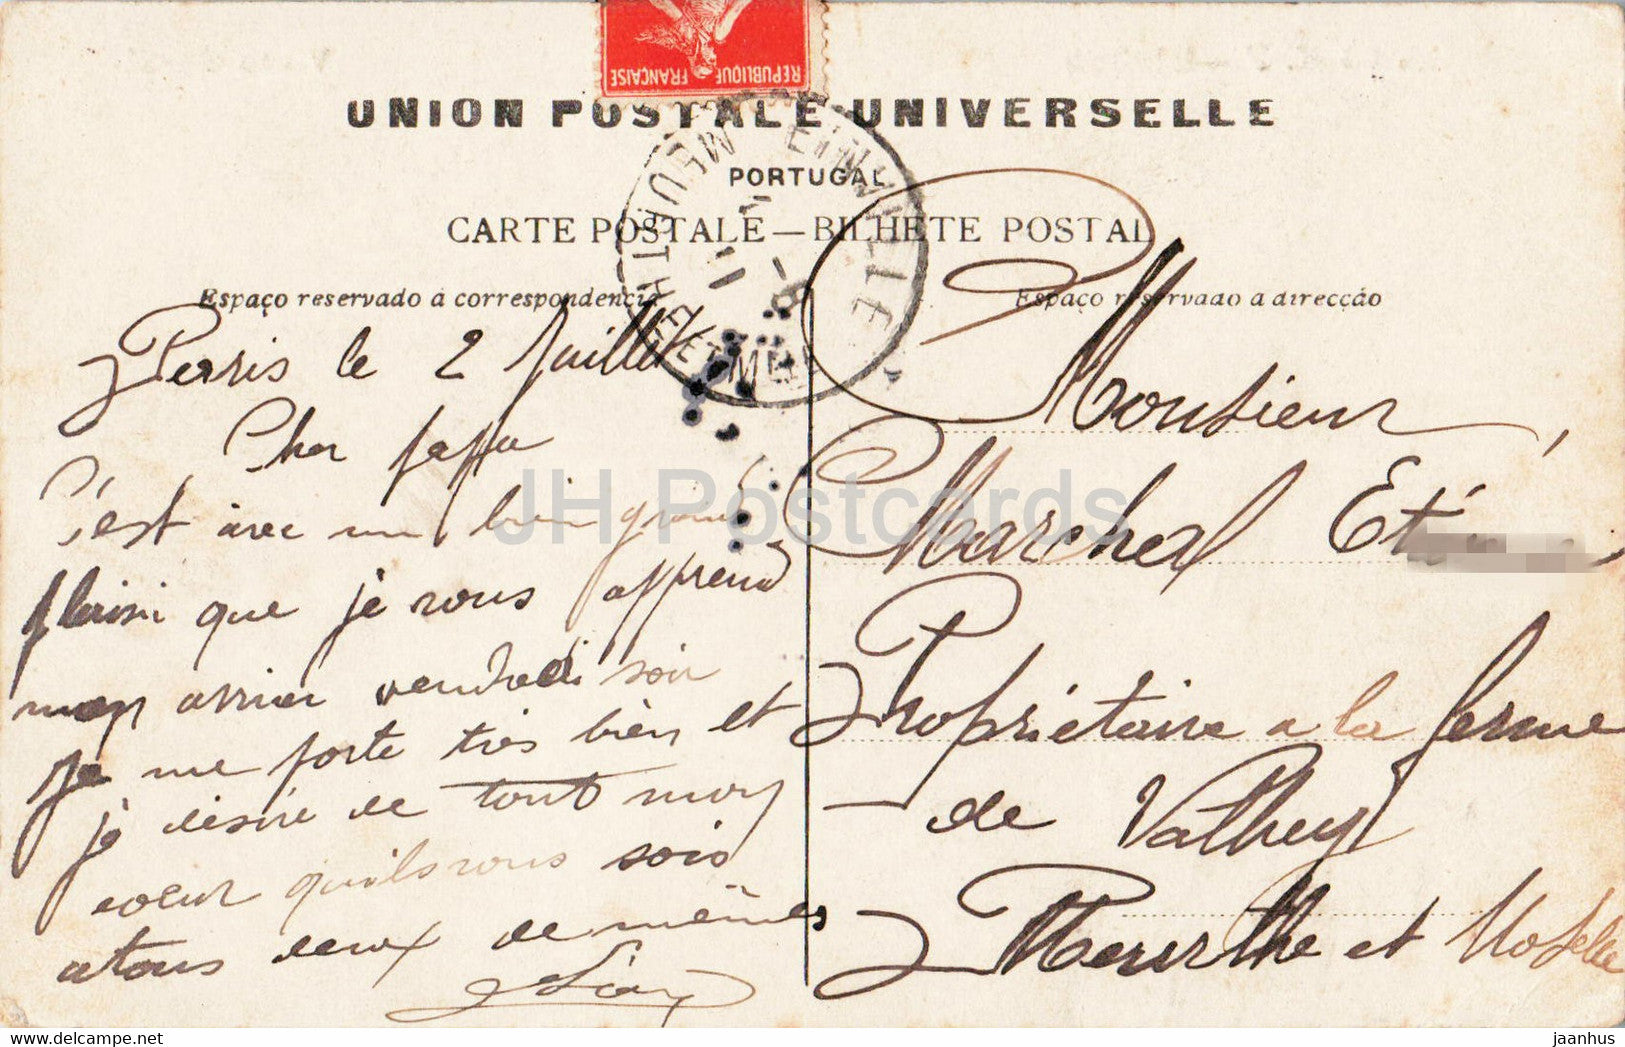 REPUBLIQUE FRANÇAISE
UNION POSTALE UNIVERSELLE
PORTUGAL
CARTE POSTALE — BILHETE POSTAL
Espaço reservado á correspondencia
Espaço reservado a direcção
EINVILLE
MEURTHE ET MELLE
2 - 8
11
Perris le 2 Juillet
Cher pappa
C'est avec un bien grand
plaisir que je vous apprend
mon arrier vendredi soir
je me porte très bien et
je désire de tout mon
coeur quils vous sois
atous deux de mêmes
Monsieur,
Marchal Eti
Propriétaire a la ferme
de Valhey
Meurthe et Moselle
JH Postcards
www.delcampe.net
jaanhus